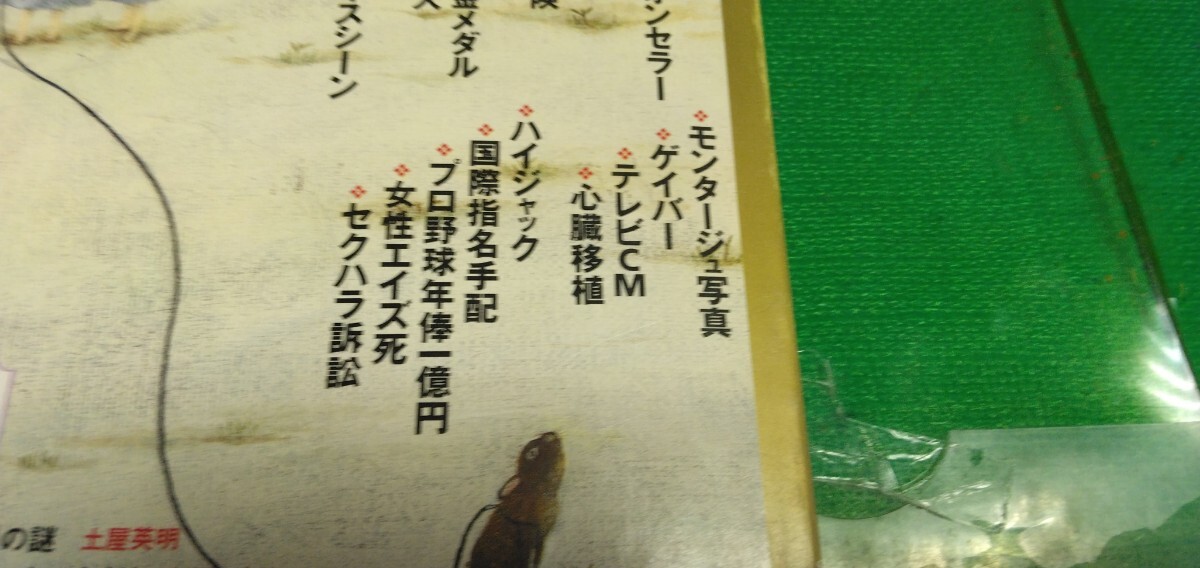 ンセラー
❖モンタージュ写真
❖ゲイバー
❖テレビCM
❖心臓移植
金メダル
❖ハイジャック
❖国際指名手配
❖プロ野球年俸一億円
❖女性エイズ死
❖セクハラ訴訟
スシーン
の謎 土屋英明